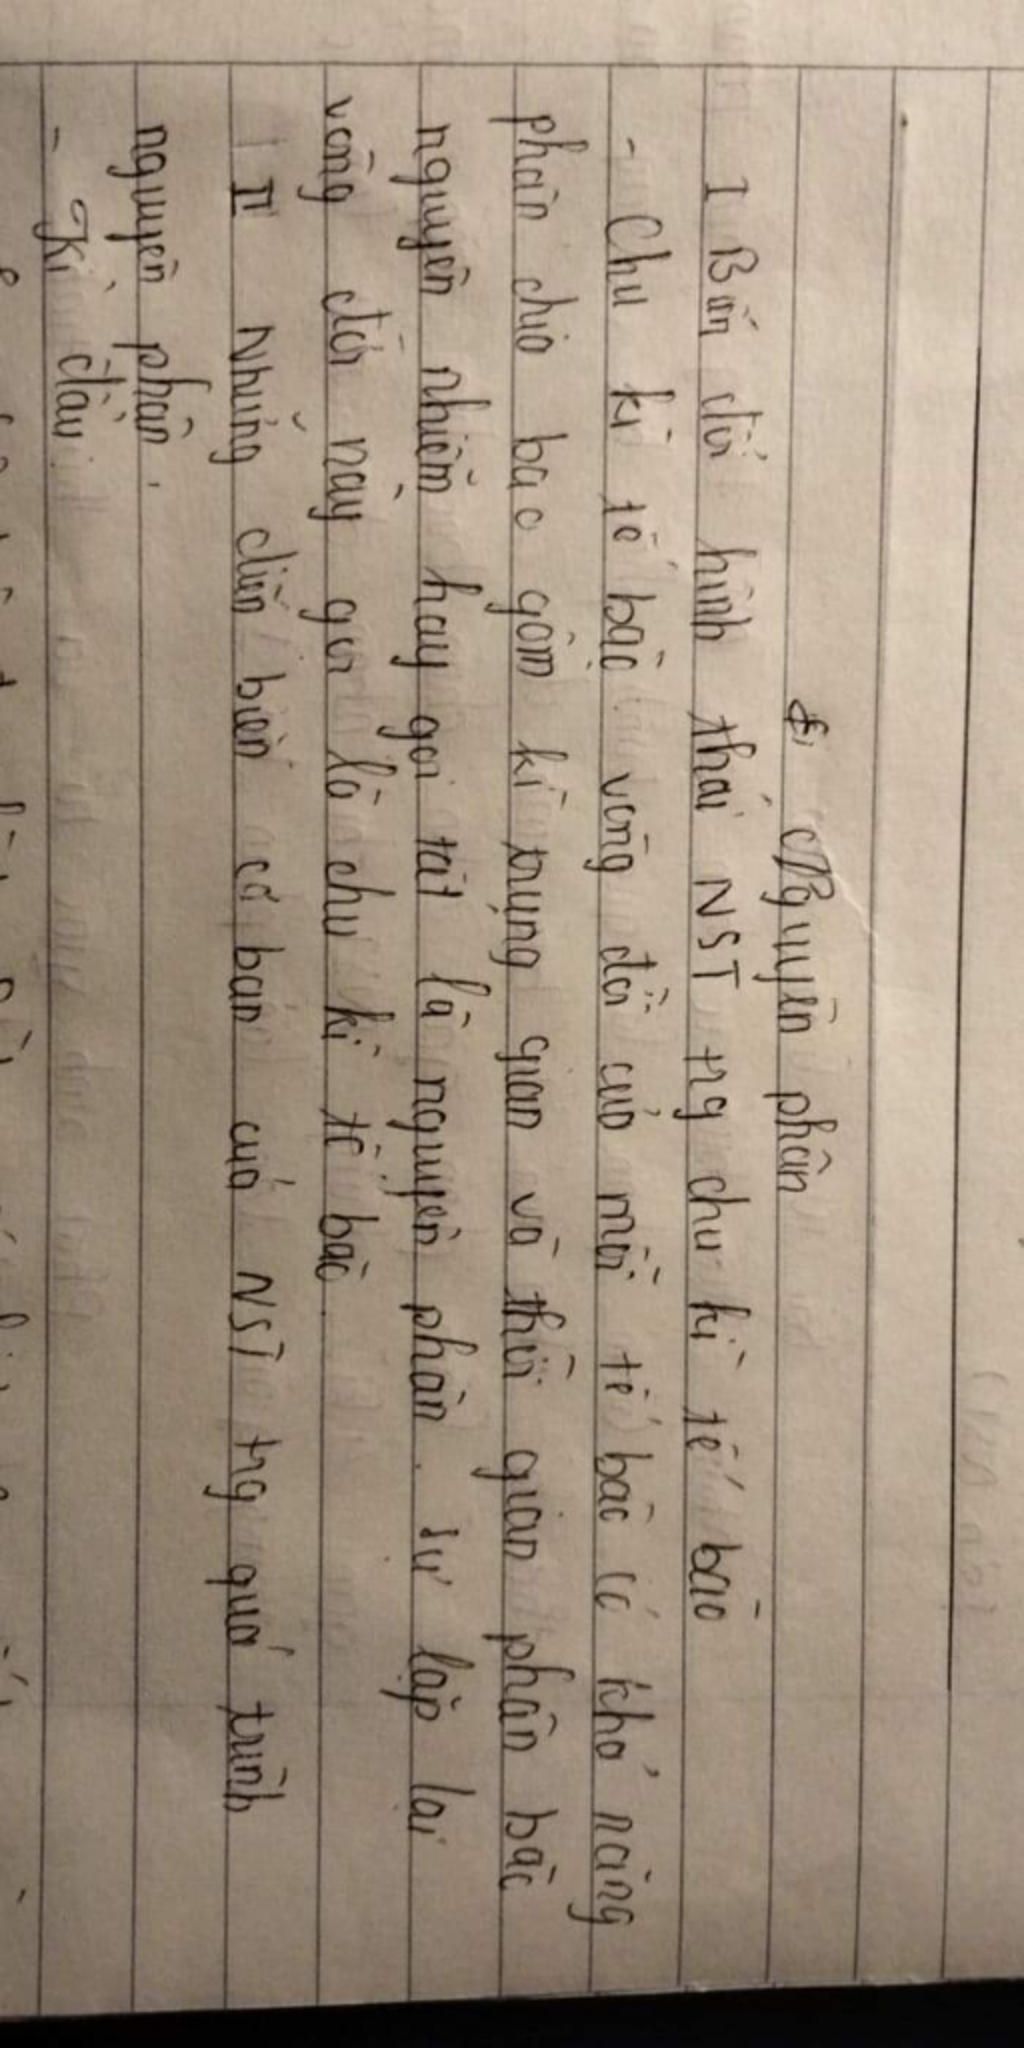 Nguyên phân
I Biến đổi hình thái NST trg chu kì tế bào
- Chu kì tế bào: vòng đời của mỗi tế bào có khả năng
phân chia bao gồm kì trung gian và thời gian phân bào
nguyên nhiễm hay gọi tắt là nguyên phân. Sự lặp lại
vòng đời này gọi là chu kì tế bào.
II Những diễn biến cơ bản của NST trg quá trình
nguyên phân.
- Kì đầu: